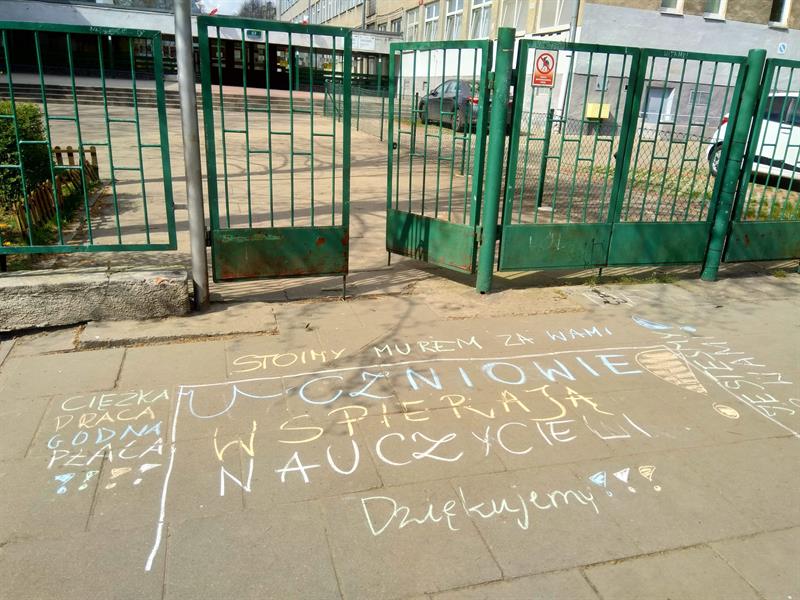 STOIMY MUREM ZA WAMI
UCZNIOWIE
WSPIERAJĄ
NAUCZYCIELI
Dziękujemy !!!
CIĘŻKA
PRACA
GODNA
PŁACA
!!!!